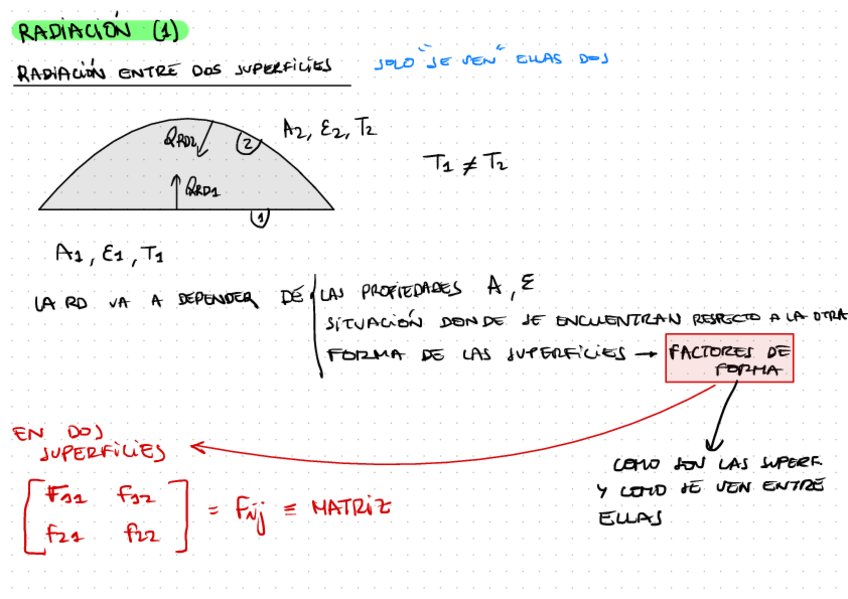 RADIACIÓN (1)
RADIACIÓN ENTRE DOS SUPERFICIES
SOLO "SE VEN" ELLAS DOS
QRD2
2
A2, ε2, T2
T1 ≠ T2
QRD1
1
A1, ε1, T1
LA RD VA A DEPENDER DE
LAS PROPIEDADES A, ε
SITUACIÓN DONDE SE ENCUENTRAN RESPECTO A LA OTRA
FORMA DE LAS SUPERFICIES → FACTORES DE
FORMA
EN DOS
SUPERFICIES
COMO SON LAS SUPERF.
Y COMO SE VEN ENTRE
ELLAS
F11 f12
f21 f22
= Fij ≡ MATRIZ